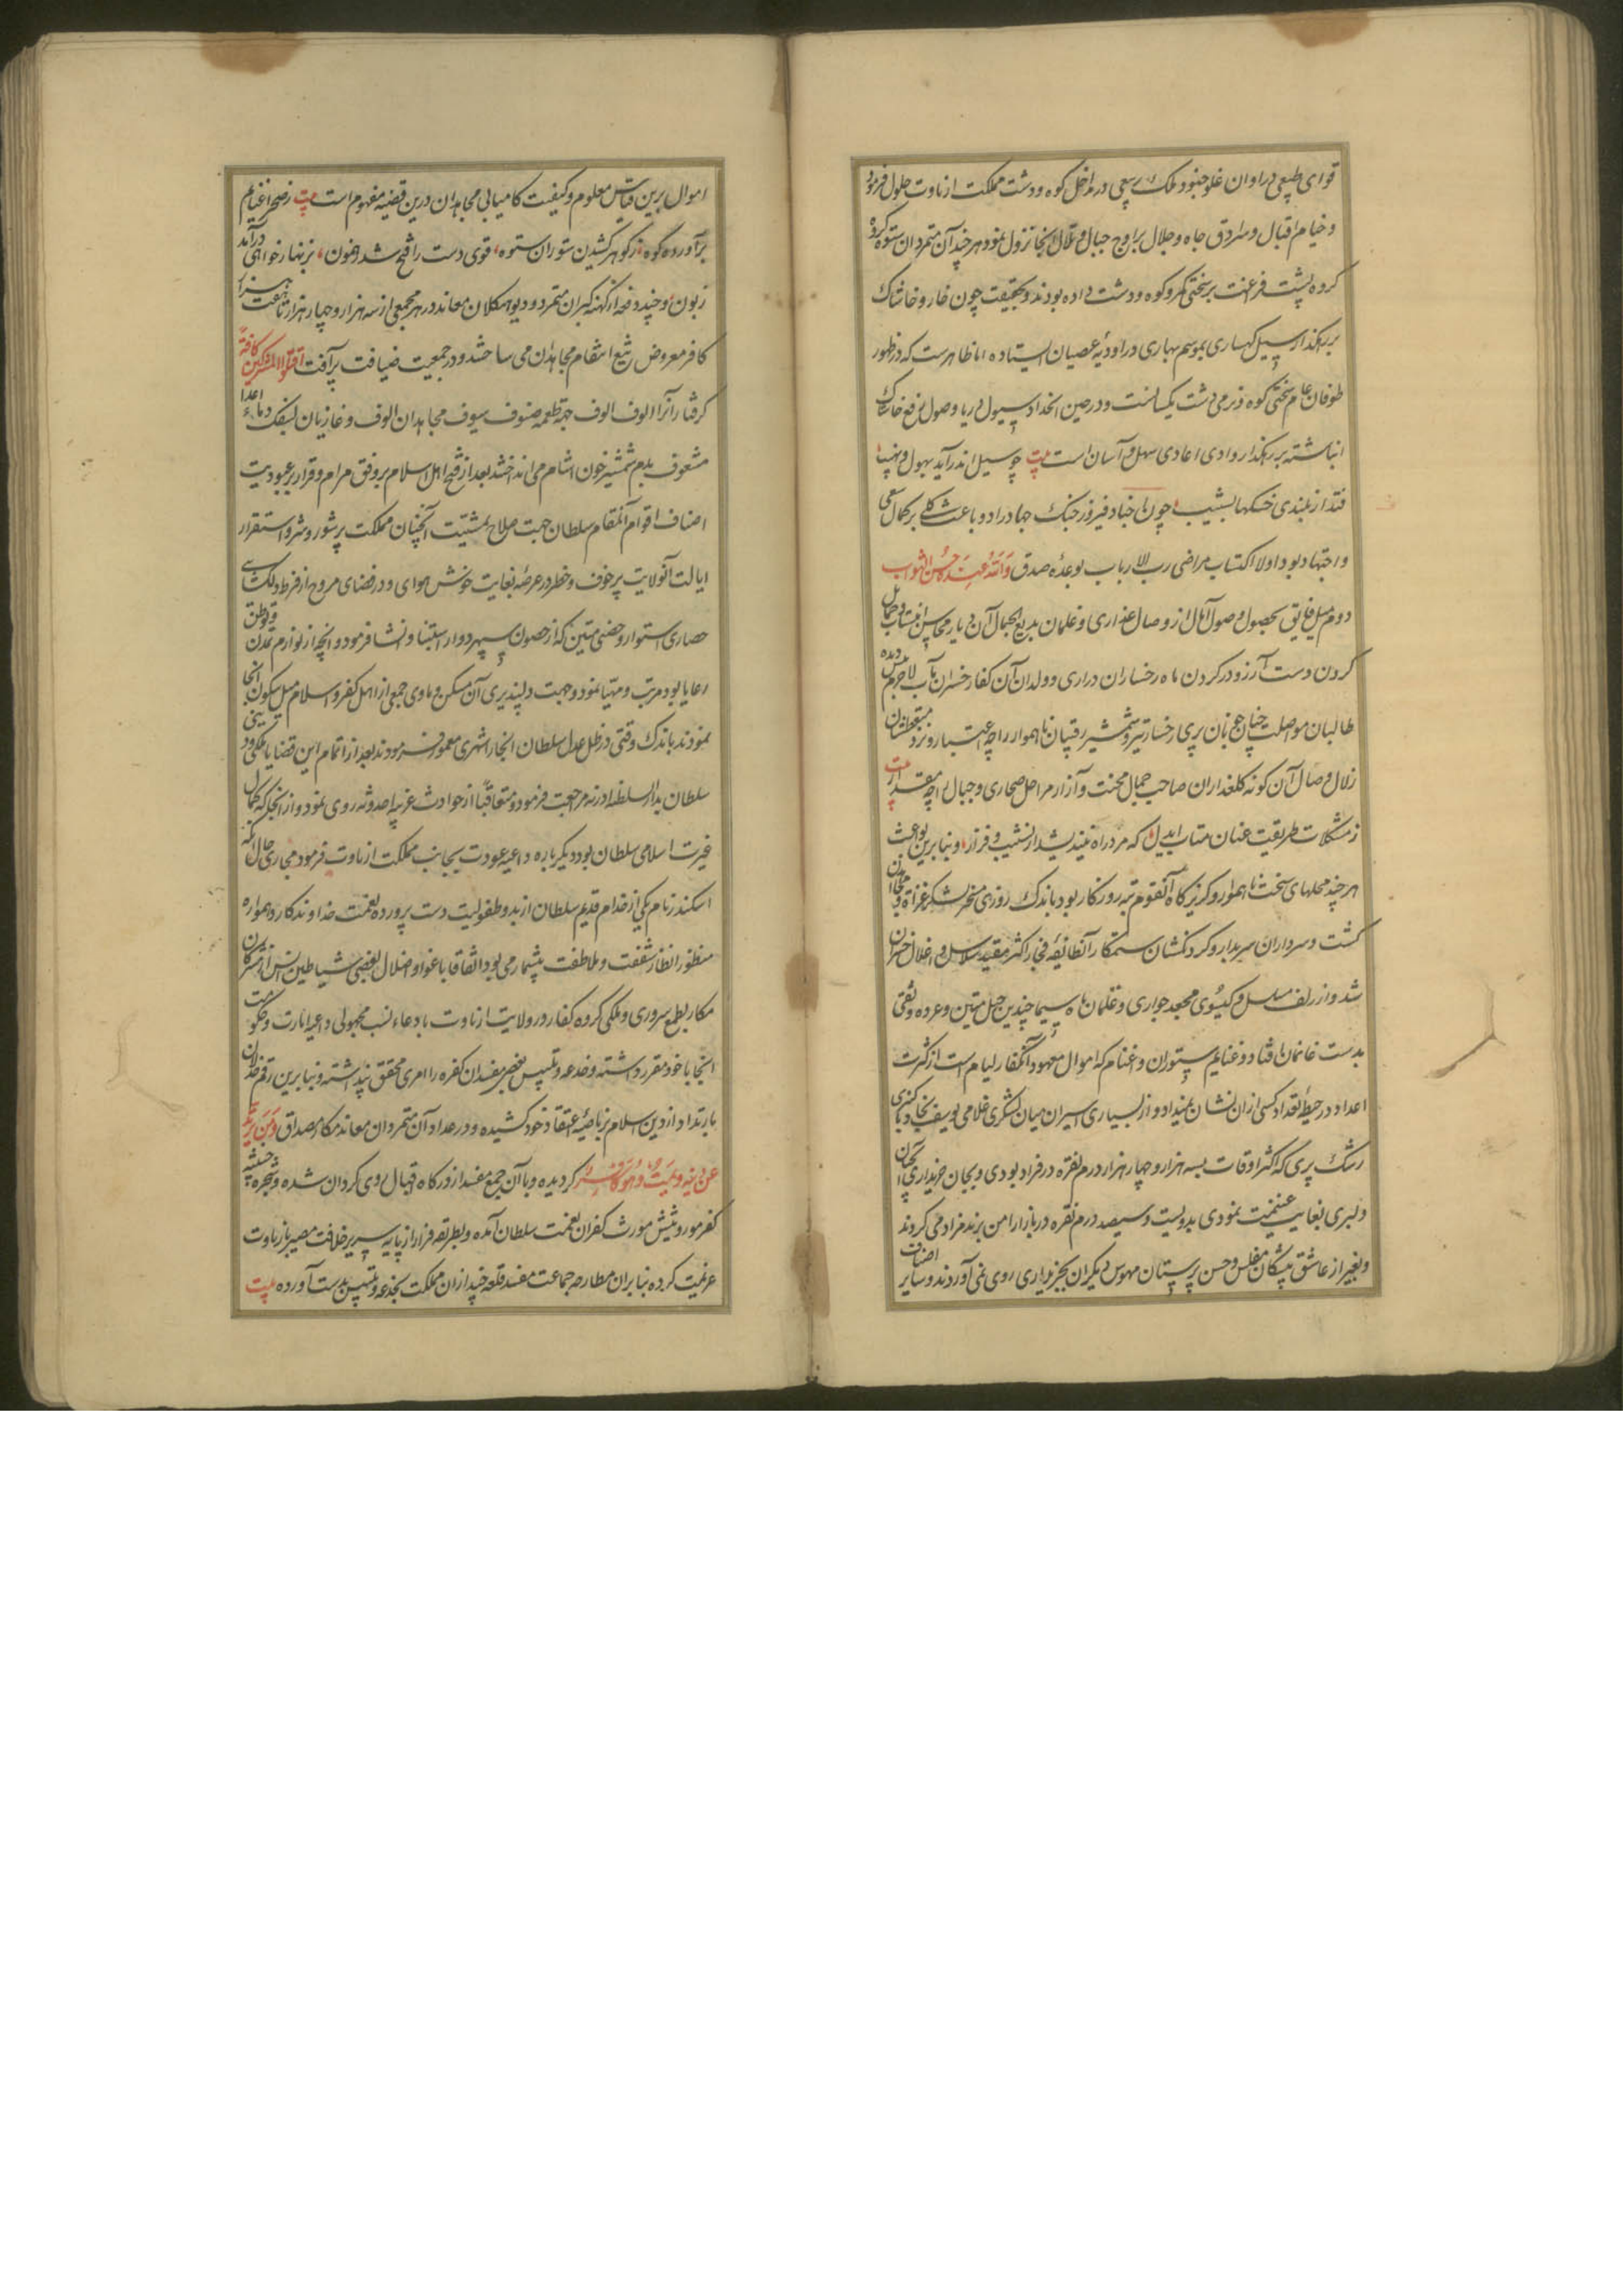 قوای طبیعی در اوان غلو جنود ملک در مداخل کوه و دشت مملکت ارناوت حلول فرمود
و خیام اقبال و سرادق جاه و جلال بر اوج جبال و تلال آنجا نزول نمود هر چند آن متمردان ستوه کرده
کروه پشت فرعنت بر سختی کوه و دشت داده بودند و بحقیقت چون خار و خاشاک
بر رهگذار سیل کهساری بموسم بهاری در اودیهٔ عصیان ایستاده اما ظاهرست که در ظهور
طوفان عام سختی کوه و نرمی دشت یکسانست و در حین انحداد سیول دریا وصول رفع خاشاک
انباشته بر رهکذار وادی اعادی سهل و آسان است بیت چو سیل اندر آید بهول و نهیب
فتد از بلندی خسکها بشیب چون اجناد فیروز جنک جهاد را دو باعث کلی بر کمال سعی
و اجتهاد بود اولا اکتساب مراضی رب الارباب بوعدهٔ صدق وَاللّٰهُ عِنْدَهُ حُسْنُ الثَّوابِ
دوم میل فایق بحصول وصول آمال از وصال عذاری و غلمان بدیع الجمال آن دیار
کردن دست آرزو در کردن ماه رخساران دراری و ولدان آن کفار خسران مآب لاجرم
طالبان مواصلت پری رخسار تیر و شمشیر رقیبان ناهموار را چه اعتبار و نزد متعطشان
زلال وصال آن کونه کلعذاران صاحب جمال محنت و آزار مراحل صحاری و جبال را چه مقدار بیت
ز مشکلات طریقت عنان متاب ای دل که مرد راه نیندیشد از نشیب و فراز و بنابرین بواعث
هر چند محلهای سخت ناهموار و کریزکاه آنقوم تبه روزکار بود باندک روزی مسخر لشکر غزاة
کشت و سرداران سربدار و کردنکشان ستمکار آنطایفهٔ فجار اکثر مقید سلاسل و اغلال خسران
شد و از زلف مسلسل و کیسوی مجعد جواری و غلمان ماه سیما چندین حبل متین و عروه وثقی
بدست غانمان افتاد و غنایم ستوران و اغنام که اموال معهود آنکفار لیام است از کثرت
اعداد در حیطهٔ تعداد کسی ازان نشان نمیداد و از بسیاری اسیران میان لشکری غلامی یوسف لقا و یا کنیزی
رشک پری که اکثر اوقات بسه هزار و چهار هزار درم نقره در فراد بودی و بجان خریداری
دلبری بغایت غنیمت نمودی بدویست و سیصد درم نقره در بازار امن یزید مزاد می کردند
و بغیر از عاشق پیشکان مفلس و حسن پرستان مهوس دیکران بخریداری روی نمی آوردند و سایر اصناف
اموال برین قیاس معلوم و کیفیت کامیابی مجاهدان درین قضیه مفهوم است بیت ز صحرا غنایم
برآورده کوه ز کوهر کشیدن ستوران ستوه قوی دست را فتح شد رهنمون بزنهار خواهی درآمد
زبون و چند دفعه از کهنه کبران متمرد و دیو هیکلان معاند در هر مجمعی از سه هزار و چهار هزار تا هفت هزار
کافر معروض تیغ انتقام مجاهدان می ساختند و در جمعیت ضیافت پرآفت اُقْتُلُوا الْمُشْرِكِينَ كَافَّةً
کرفتارآنرا الوف الوف جهة طعمه صنوف سیوف مجاهدان الوف و غازیان بسفک دماء اعدا
مشعوف بدم شمشیر خون آشام می انداختند بعد از فتح اهل اسلام بر وفق مرام و قرار بر عبودیت
اصناف اقوام آنمقام سلطان جهت صلاح تمشیت آنچنان مملکت پرشور و شر و استقرار
ایالت آنولایت پرخوف و خطر در عرصهٔ بغایت خوش هوای و در فضای مروح از فرط دلکشایی
حصاری استوار و حصنی متین که از حصون سپهر دوار استبنا و انشا فرمود و آنچه از لوازم تمدن و توطن
رعایا بود مرتب و مهیا نمود و جهت دلپذیری آن مسکن و ماوی جمعی از اهل کفر و اسلام میل سکون آنجا
نمودند باندک وقتی در ظل عدل سلطان آنجا را شهری معمور فرمودند بعد از اتمام این قضایا ملکی و دینی
سلطان بدار السلطنهٔ ادرنه مراجعت فرمود و متعاقبًا از حوادث غریبه احدوثه روی نمود و از آنجا که کمال
غیرت اسلامی سلطان بود دیکرباره داعیهٔ عودت بجانب مملکت ارناوت فرمود مجاری حال آنکه
اسکندر نام یکی از خدام قدیم سلطان از بدو طفولیت دست پرورده نعمت خداوندکار و همواره
منظور انظار شفقت و ملاطفت بیشمار می بود اتفاقا باغوا و اضلال بعضی شیاطین انس از مشرکان
مکار بطمع سروری و ملکی کروه کفار در ولایت ارناوت بادعاء نسب مجهولی داعیهٔ امارت و حکومت
آنجا با خود مقرر داشته و خدعه و تلبیس بعضی مفسدان کفره را امری محقق پنداشته و بنابرین رقم خذلان
بارتداد از دین اسلام بر ناصیهٔ اعتقاد خود کشیده و در عداد آن متمردان معاند مکار مصداق وَمَنْ يَرْتَدَّ
عَنْ دِينِهِ فَيَمُتْ وَهُوَ كَافِرٌ کردیده و با آن جمع مفسد از درکاه اقبال روی کردان شده و شجرهٔ خبیثه
کفر موروثیش مورث کفران نعمت سلطان آمده و بطریقه فرار از پایهٔ سریر خلافت مصیر بارناوت
عزیمت کرده بنابران مظاهرهٔ جماعت مفسد قلعهٔ چند ازان مملکت بخدعه و تلبیس بدست آورده بیت